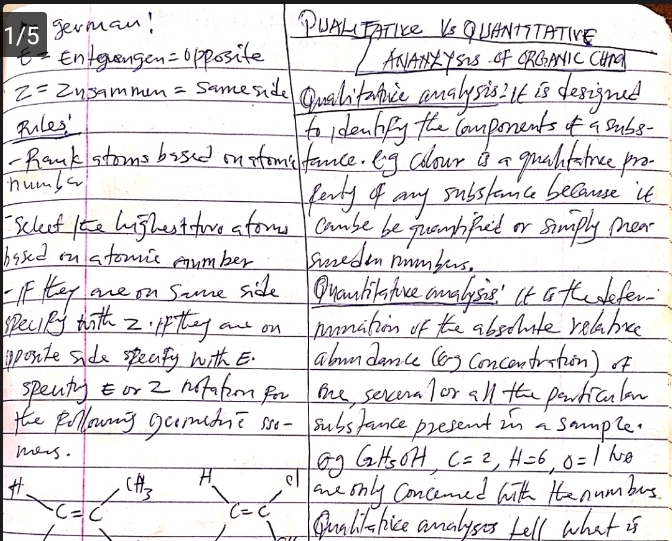 1/5
german!
E = Entgengen = opposite
Z = Zusammen = Same side
Rules!
- Rank atoms based on atomic
number
- Select the highest two atoms
based on atomic number
- If they are on Same side
specify with Z. If they are on
opposite side specify with E.
specify E or Z notation for
the following geometric iso-
mers.
H CH3 H Cl
C=C C=C
QUALITATIVE Vs QUANTITATIVE
ANALYSIS OF ORGANIC CHM
Qualitative analysis: It is designed
to identify the components of a subs-
tance. eg colour is a qualitative pro-
perty of any substance because it
can be be quantified or simply mea
sured in numbers.
Quantitative analysis! It is the deter-
mination of the absolute relative
abundance (eg concentration) of
one, several or all the particular
substance present in a sample.
eg C2H5OH, C=2, H=6, O=1 we
are only concerned with the numbers
Qualitative analysis tell what is